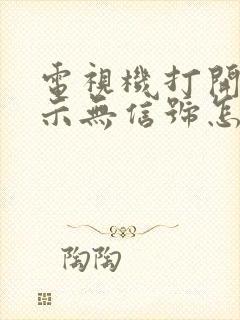 電視機打開
示無信號怎
陶陶